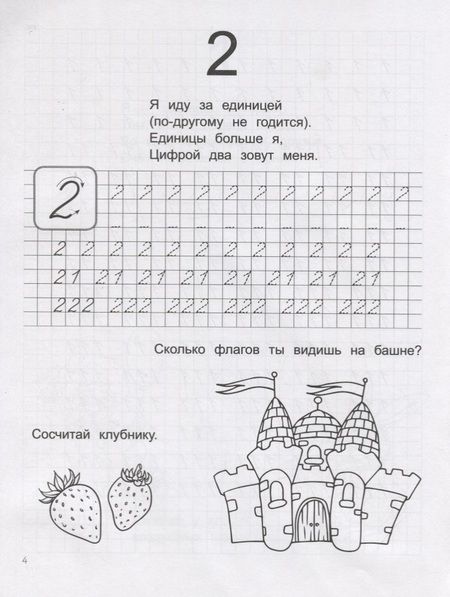 2
Я иду за единицей
(по-другому не годится).
Единицы больше я,
Цифрой два зовут меня.
2 2 2 2 2 2 2 2 2 2 2 2
2 2 2 2 2 2 2 2 2 2 2 2
21 21 21 21 21 21 21 21
222 222 222 222 222 222
Сколько флагов ты видишь на башне?
Сосчитай клубнику.
4